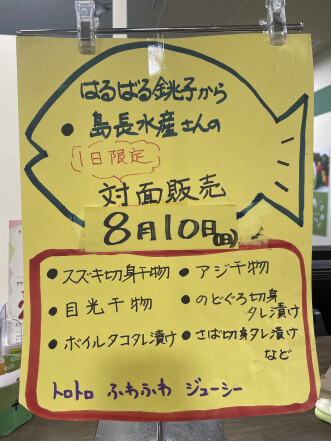 はるばる銚子から
島長水産さんの
1日限定
対面販売
8月10日(日)
● スズキ切身干物
● 目光干物
● ボイルタコタレ漬け
● アジ干物
● のどぐろ切身
タレ漬け
● さば切身タレ漬け
など
トロトロ ふわふわ ジューシー